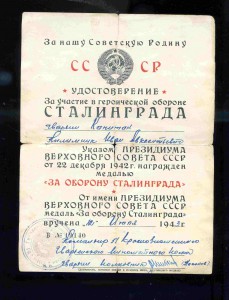 За нашу Советскую Родину
СС СР
УДОСТОВЕРЕНИЕ
За участие в героической обороне
СТАЛИНГРАДА
гвардии Капитан
Указом ПРЕЗИДИУМА
ВЕРХОВНОГО СОВЕТА СССР
от 22 декабря 1942 г. награжден
медалью
«ЗА ОБОРОНУ СТАЛИНГРАДА»
От имени ПРЕЗИДИУМА
ВЕРХОВНОГО СОВЕТА СССР
медаль «За оборону Сталинграда»
вручена Июля 1943 г.
Командир Краснознаменного
гвардии